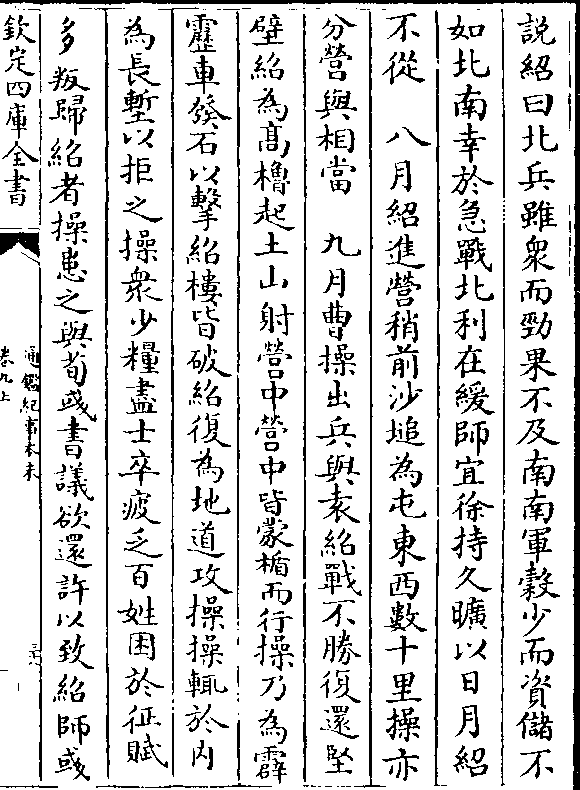 說紹曰北兵雖衆而勁果不及南南軍穀少而資儲不
如北南幸於急戰北利在緩師宜徐持久曠以日月紹
不從　八月紹進營稍前沙塠為屯東西數十里操亦
分營與相當　九月曹操出兵與袁紹戰不勝復還堅
壁紹為高櫓起土山射營中營中皆蒙楯而行操乃為霹
靂車發石以擊紹樓皆破紹復為地道攻操操輒於内
為長塹以拒之操衆少糧盡士卒疲乏百姓困於征賦
多叛歸紹者操患之與荀彧書議欲還許以致紹師彧
欽定四庫全書
通鑑紀事本末
卷九上